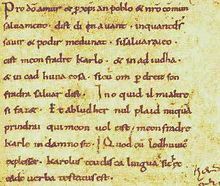 Pro dō amur & p xp̄ian poblo & nrō comun
saluament. dist di en auant. inquantds
sauir & podir medunat. sisaluaraieo
cist meon fradre karlo. & in aiudha
& in cad huna cosa. sicū om p dreit son
fradra saluar dift. Ino quid il mi altre
si faz&. Et ab ludher nul plaid nūquā
prindrai qui meon uol cist meon fradre
karle in damno sit. Quod cū lodhuuic
explesset. karolus teudisca lingua sic ec
eadē uerba testatus est.